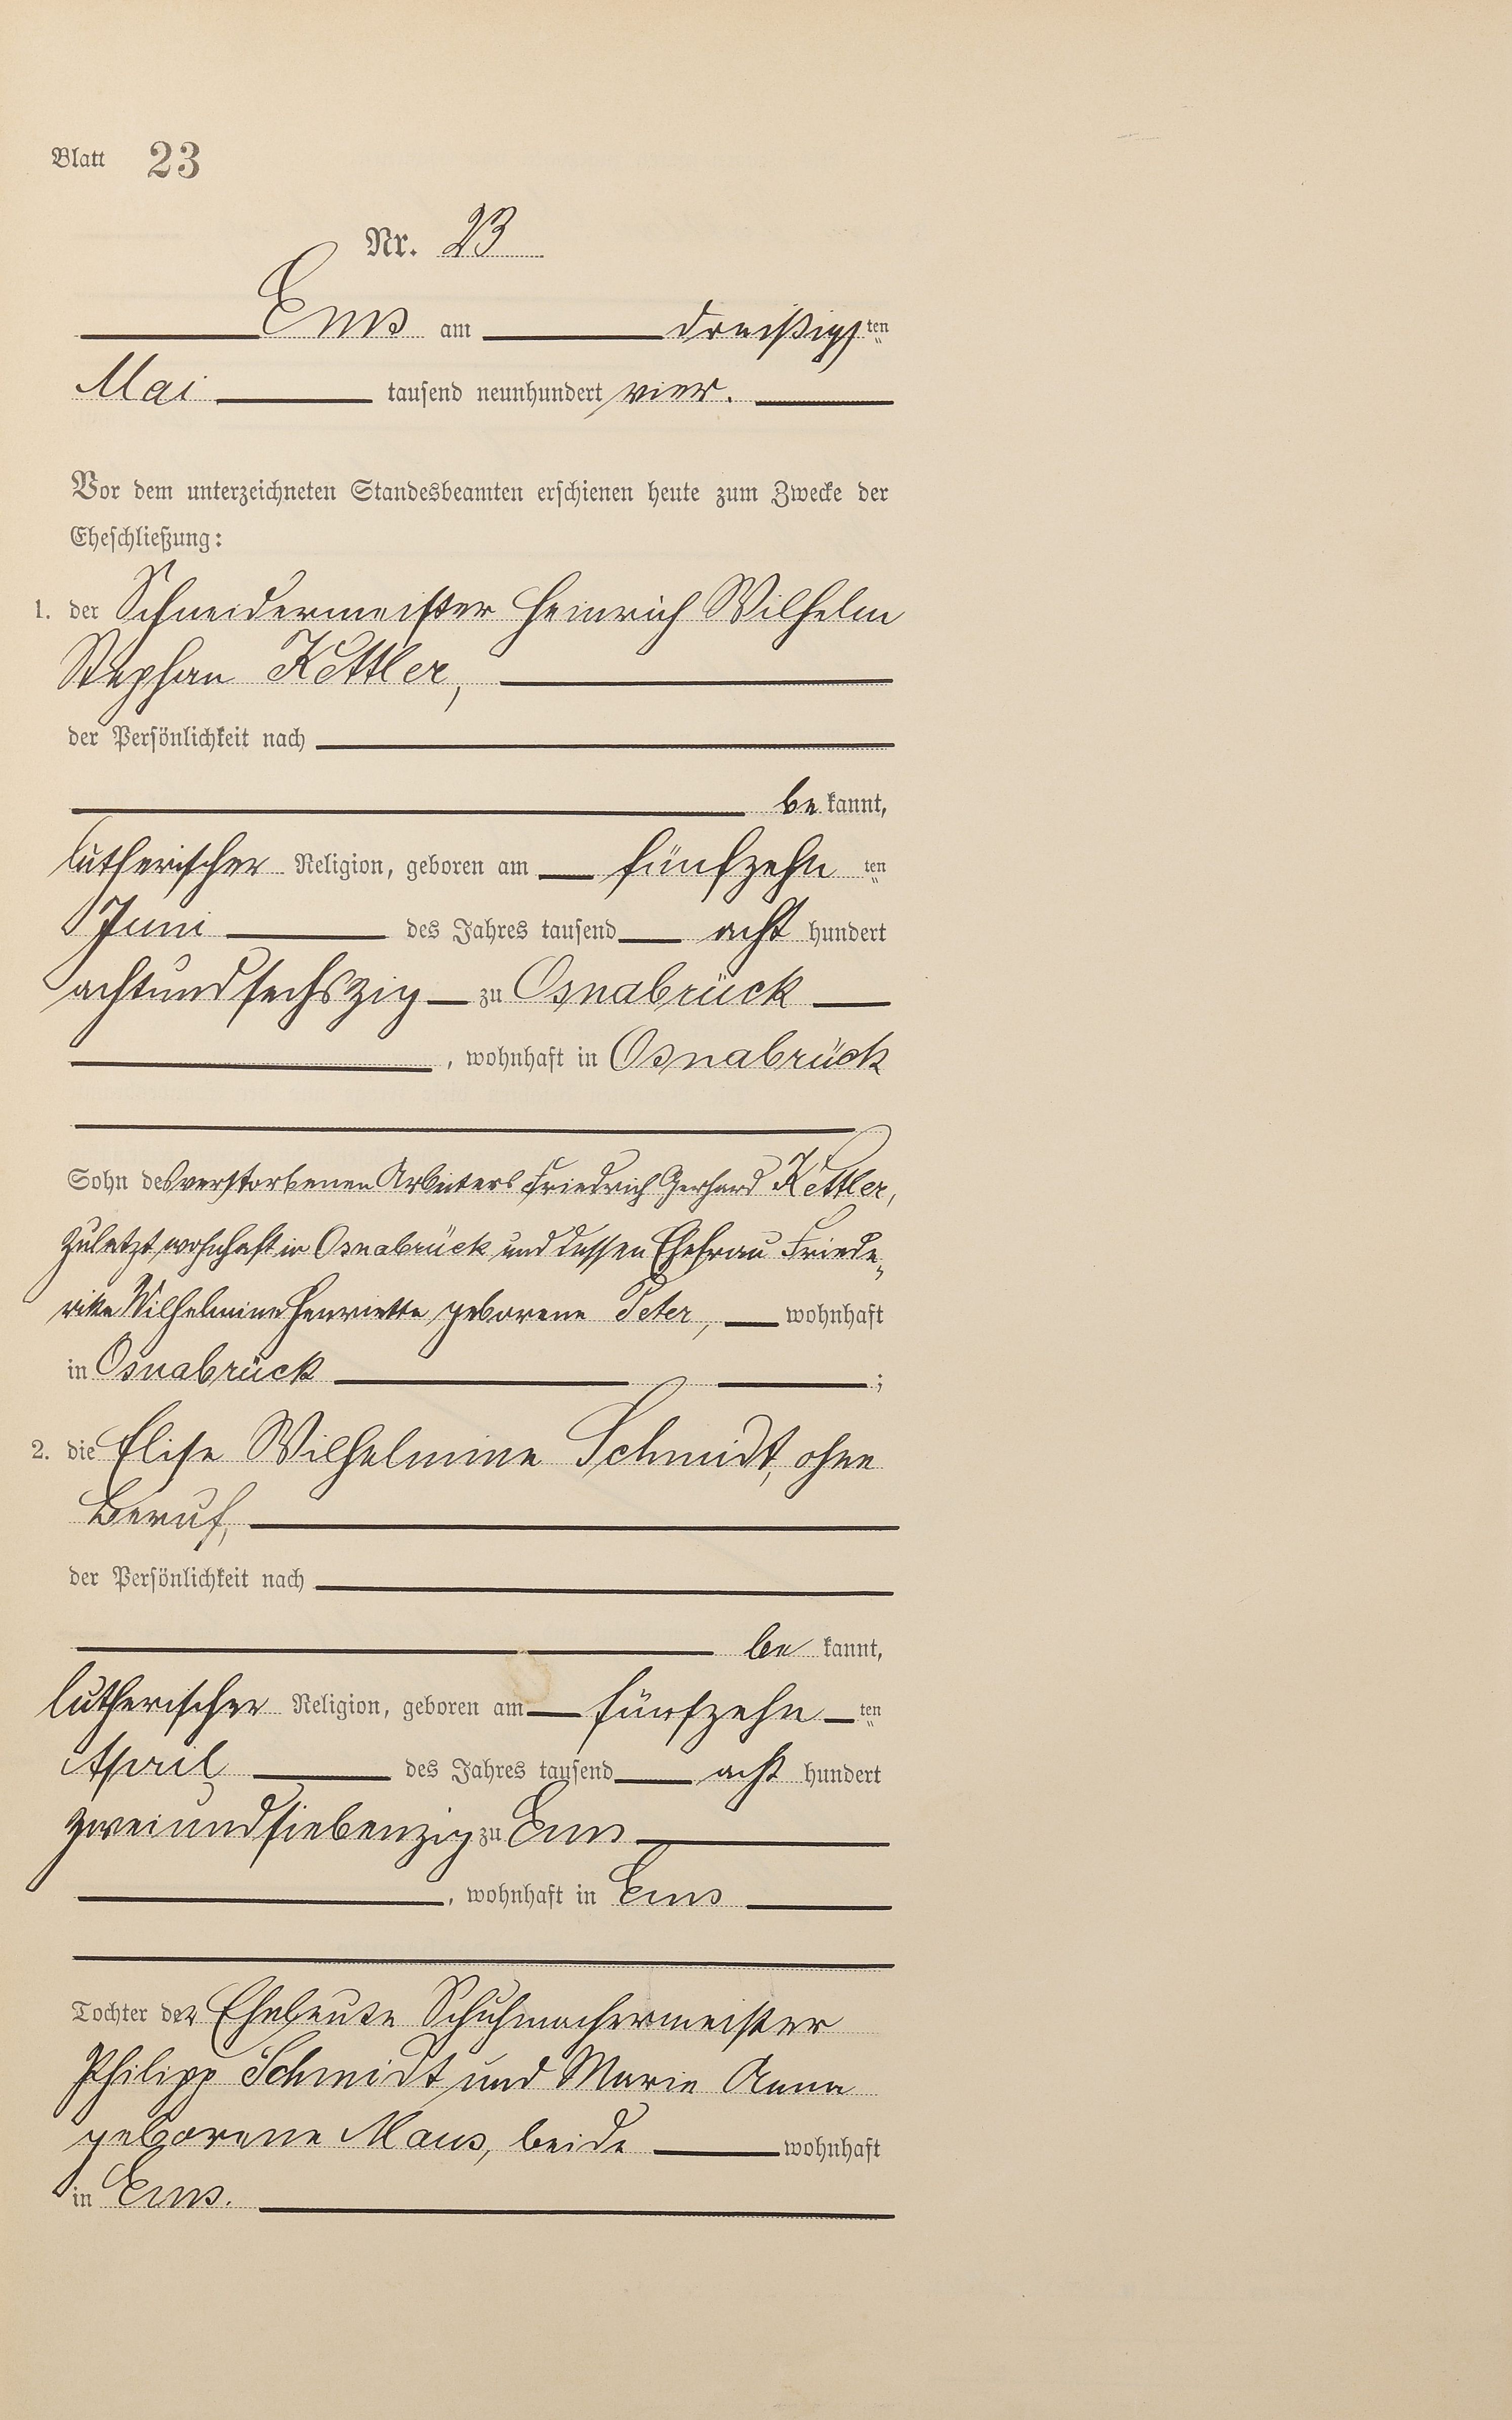 Blatt 23
Nr. 23
Ems am dreißigsten
Mai tausend neunhundert vier.
Vor dem unterzeichneten Standesbeamten erschienen heute zum Zwecke der
Eheschließung:
1. der Schneidermeister Heinrich Wilhelm
Stephan Kettler,
der Persönlichkeit nach
be kannt,
lutherischer Religion, geboren am fünfzehn ten
Juni des Jahres tausend acht hundert
achtundsechszig zu Osnabrück
, wohnhaft in Osnabrück
Sohn des verstorbenen Arbeiters Friedrich Gerhard Kettler,
zuletzt wohnhaft in Osnabrück und dessen Ehefrau Friede-
rike Wilhelmine Henriette geborene Peter, wohnhaft
in Osnabrück ;
2. die Elise Wilhelmine Schmidt, ohne
Beruf,
der Persönlichkeit nach
be kannt,
lutherischer Religion, geboren am fünfzehn ten
April des Jahres tausend acht hundert
zweiundsiebenzig zu Ems
, wohnhaft in Ems
Tochter der Eheleute Schuhmachermeister
Philipp Schmidt und Marie Anna
geborene Maus, beide wohnhaft
in Ems.